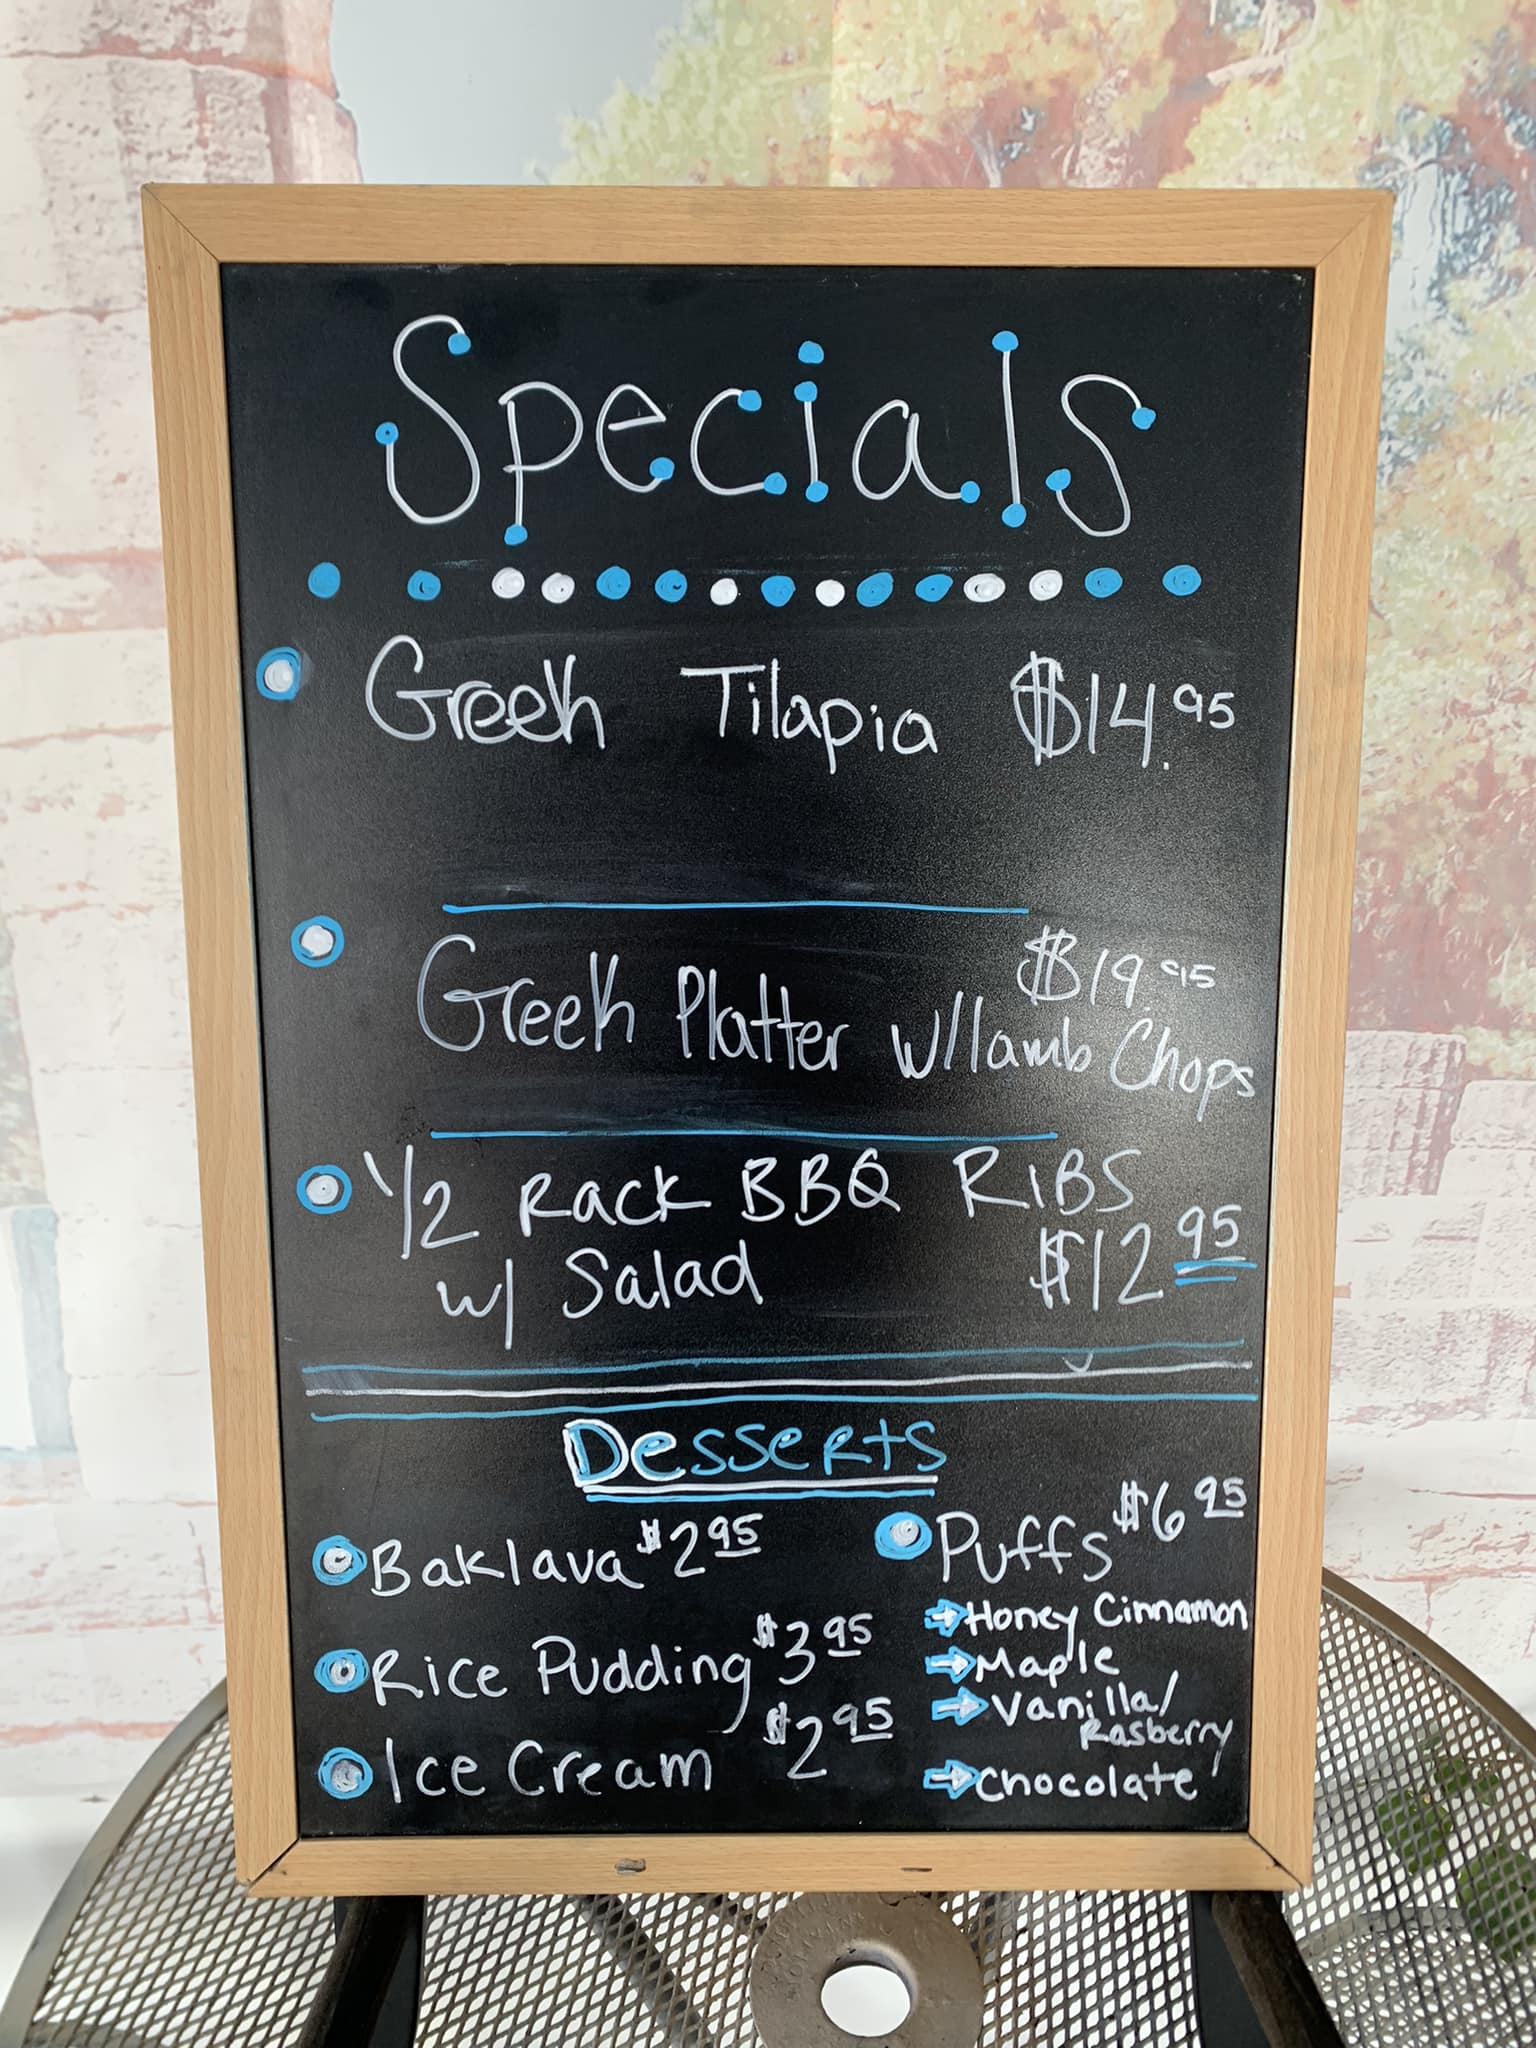 Specials
Greek Tilapia $14.95
$19.95
Greek Platter w/lamb Chops
1/2 Rack BBQ RiBS
w/ Salad $12 95
Desserts
Baklava $2 95
Rice Pudding $3 95
Ice Cream $2 95
Puffs $6 95
Honey Cinnamon
Maple
Vanilla/
Rasberry
Chocolate